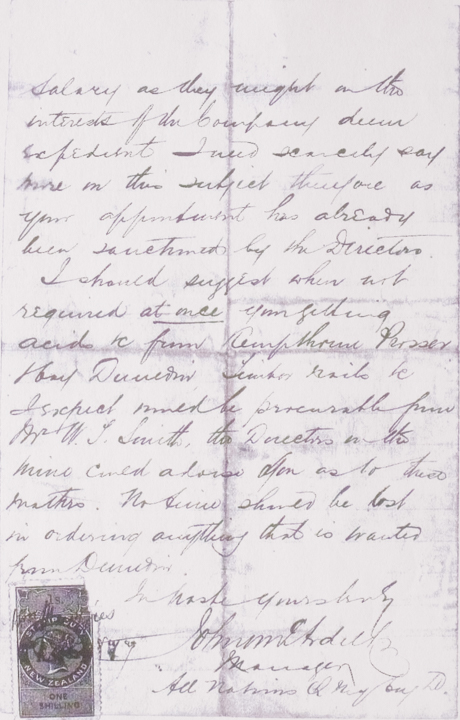 salary as they might in the
interests of the Company deem
expedient I need scarcely say
more on this subject therefore as
your appointment has already
been sanctioned by the Directors.
I should suggest when not
required at once your getting
acids &c from Kempthorne Prosser
& Coy Dunedin, Timber nails &c
I expect would be procurable from
Mr W. J. Smith, the Directors in the
mine could advise you as to these
matters. No time should be lost
in ordering anything that is wanted
from Dunedin
In haste yours truly
John McArdell
Manager
All Nations Q My Coy Ld.
STAMP DUTY
NEW ZEALAND
ONE
SHILLING